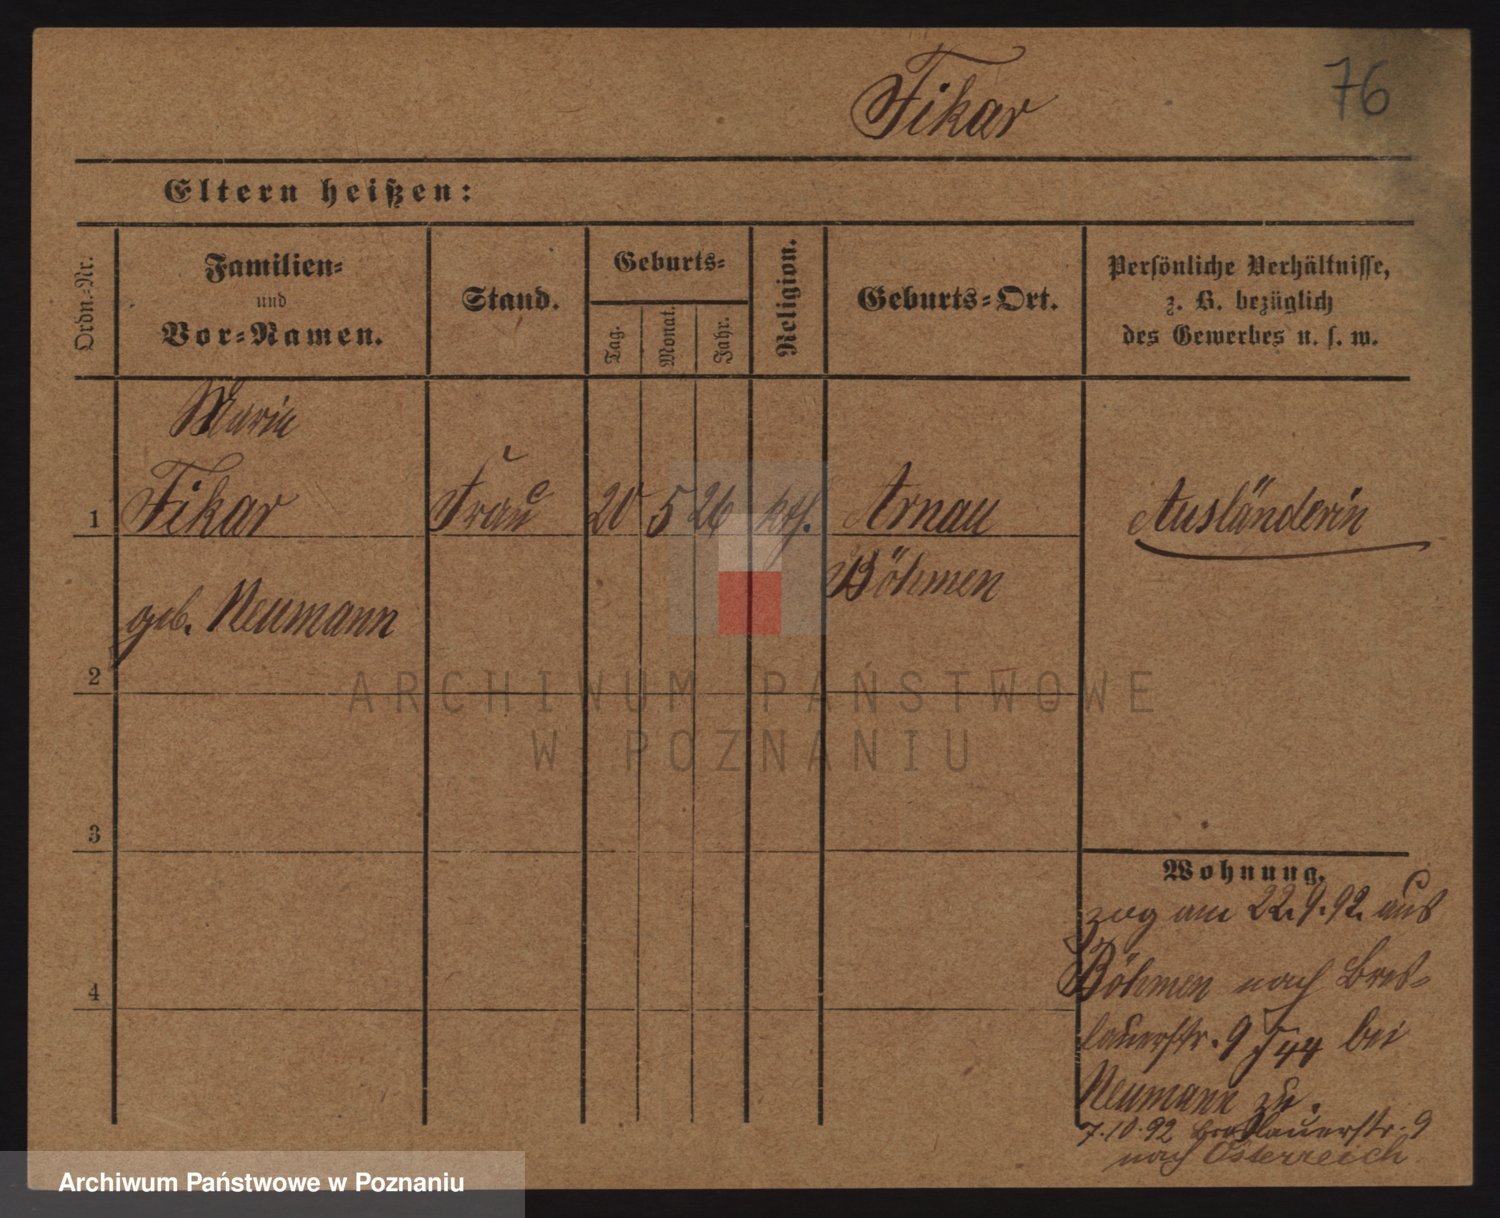 Fikar
76
Eltern heißen:
Ordn.-Nr.
Familien-
und
Vor-Namen.
Stand.
Geburts-
Tag.
Monat.
Jahr.
Religion.
Geburts-Ort.
Persönliche Verhältnisse,
z. B. bezüglich
des Gewerbes u. s. w.
Marie
1 Fikar Frau 20 5 26 kth. Arnau Ausländerin
Böhmen
geb. Neumann
2
ARCHIWUM PAŃSTWOWE
W POZNANIU
3
Wohnung.
zog am 22.9.92. aus
Böhmen nach Bres-
4
lauerstr. 9 J 44 bei
Neumann zu.
7.10.92 Breslauerstr. 9
nach Österreich
Archiwum Państwowe w Poznaniu